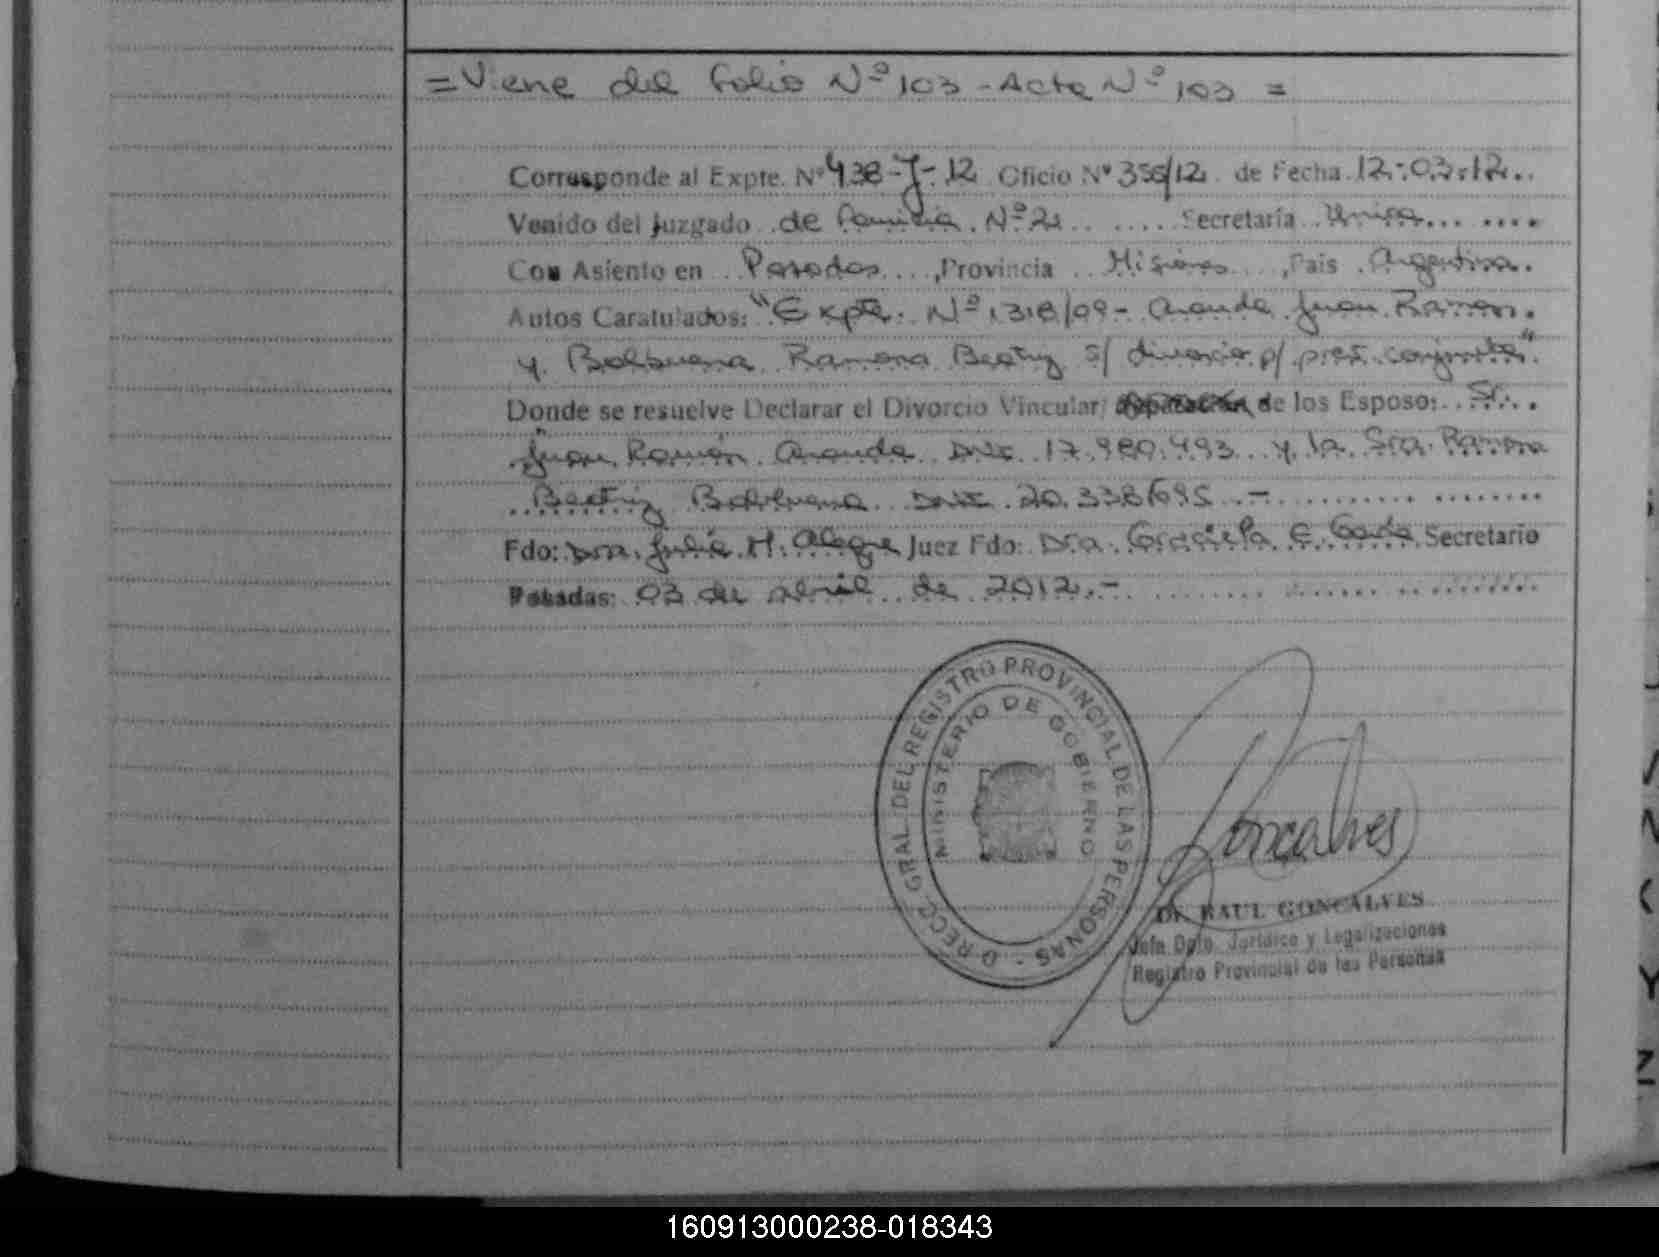 = Viene del folio Nº 103 - Acta Nº 103 =
Corresponde al Expte. Nº 438-J-12 Oficio Nº 356/12 de Fecha 12-03-12
Venido del Juzgado de Familia Nº 2 Secretaría Unica
Con Asiento en Posadas, Provincia Misiones, País Argentina.
Autos Caratulados: "Expte. Nº 1318/09 - Aranda Juan Ramon
y Balbuena Ramona Beatriz s/ divorcio p/ pres. conjunta"
Donde se resuelve Declarar el Divorcio Vincular/ de los Esposo: Sr.
Juan Ramón Aranda DNI 17.980.493 y la Sra. Ramona
Beatriz Balbuena DNI 20.338.695.-
Fdo: Dra. Julia H. Alegre Juez Fdo: Dra. Graciela E. Secretario
Posadas: 03 de abril de 2012.-
DIRECC. GRAL. DEL REGISTRO PROVINCIAL DE LAS PERSONAS
MINISTERIO DE GOBIERNO
Goncalves
Dr. RAUL GONCALVES
Jefe Dpto. Jurídico y Legalizaciones
Registro Provincial de las Personas
160913000238-018343